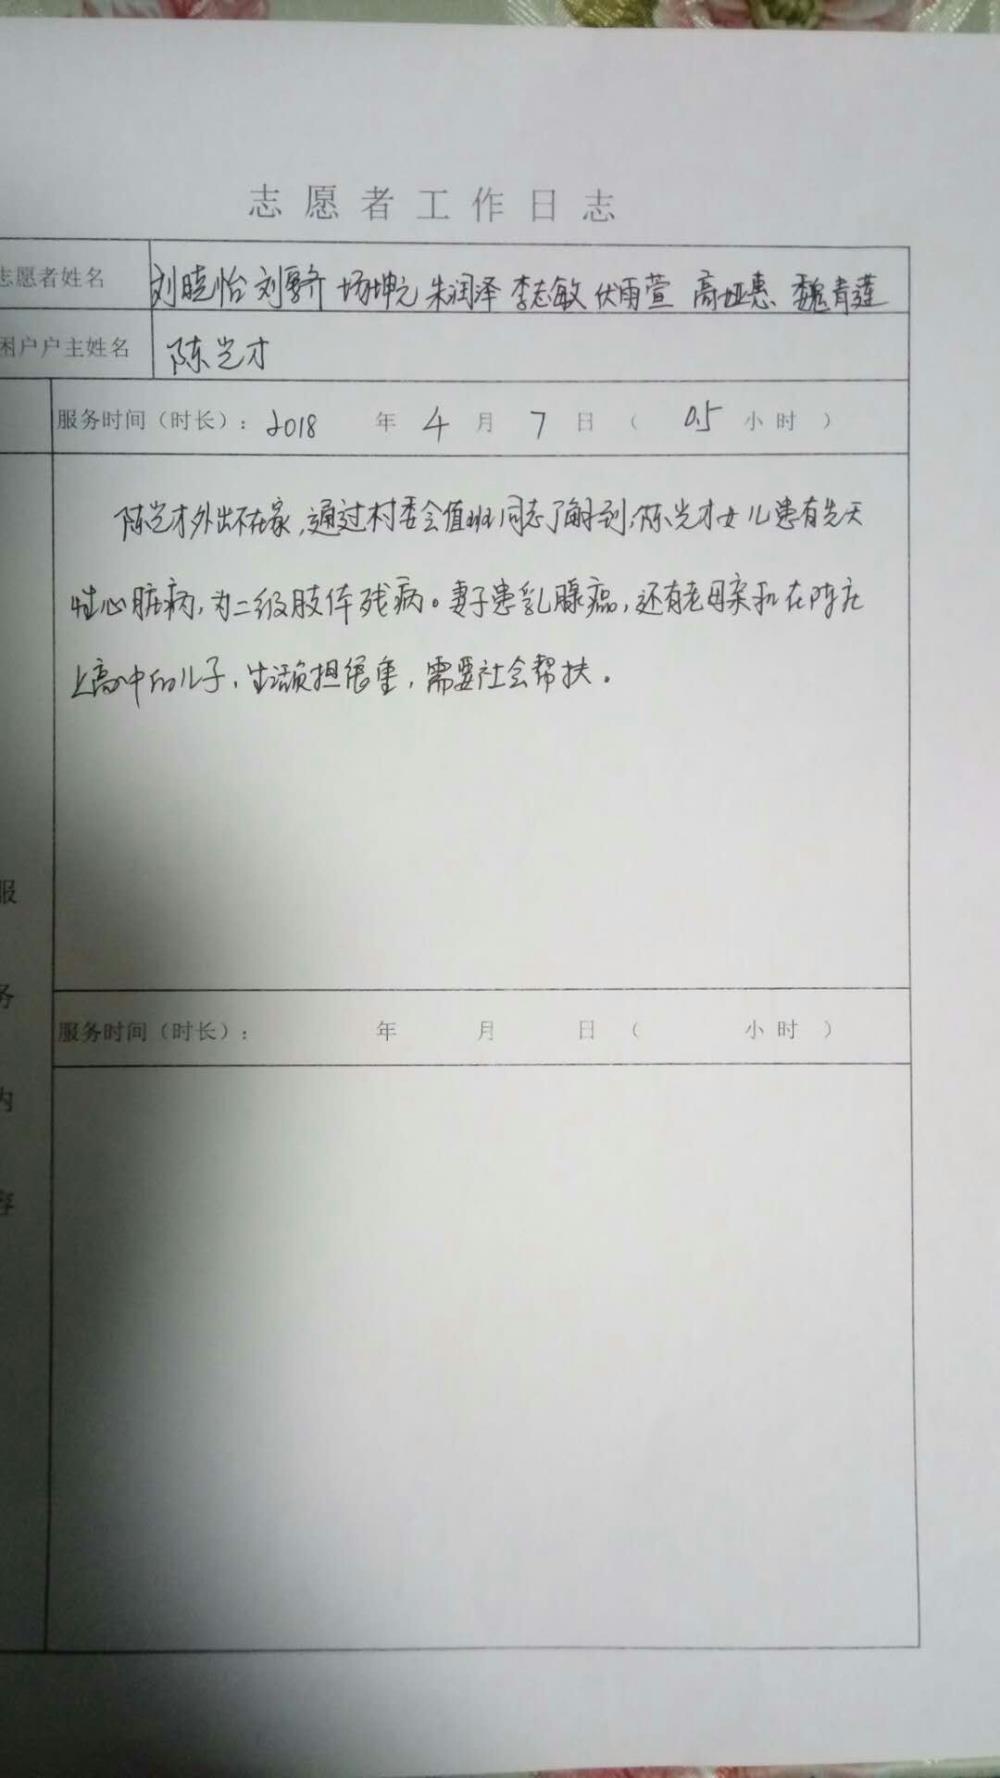 志愿者工作日志
志愿者姓名 刘晓怡 刘 杨坤元 朱润泽 李志敏 伏雨萱 高娅惠 魏青莲
困户户主姓名 陈光才
服务时间（时长）：2018 年 4 月 7 日（ 0.5 小时）
陈光才外出不在家，通过村委会值班同志了解到，陈光才女儿患有先天
性心脏病，为二级肢体残病。妻子患乳腺癌，还有老母亲和在陈庄
上高中的儿子，生活负担很重，需要社会帮扶。
服
务
内
容
服务时间（时长）： 年 月 日（ 小时）